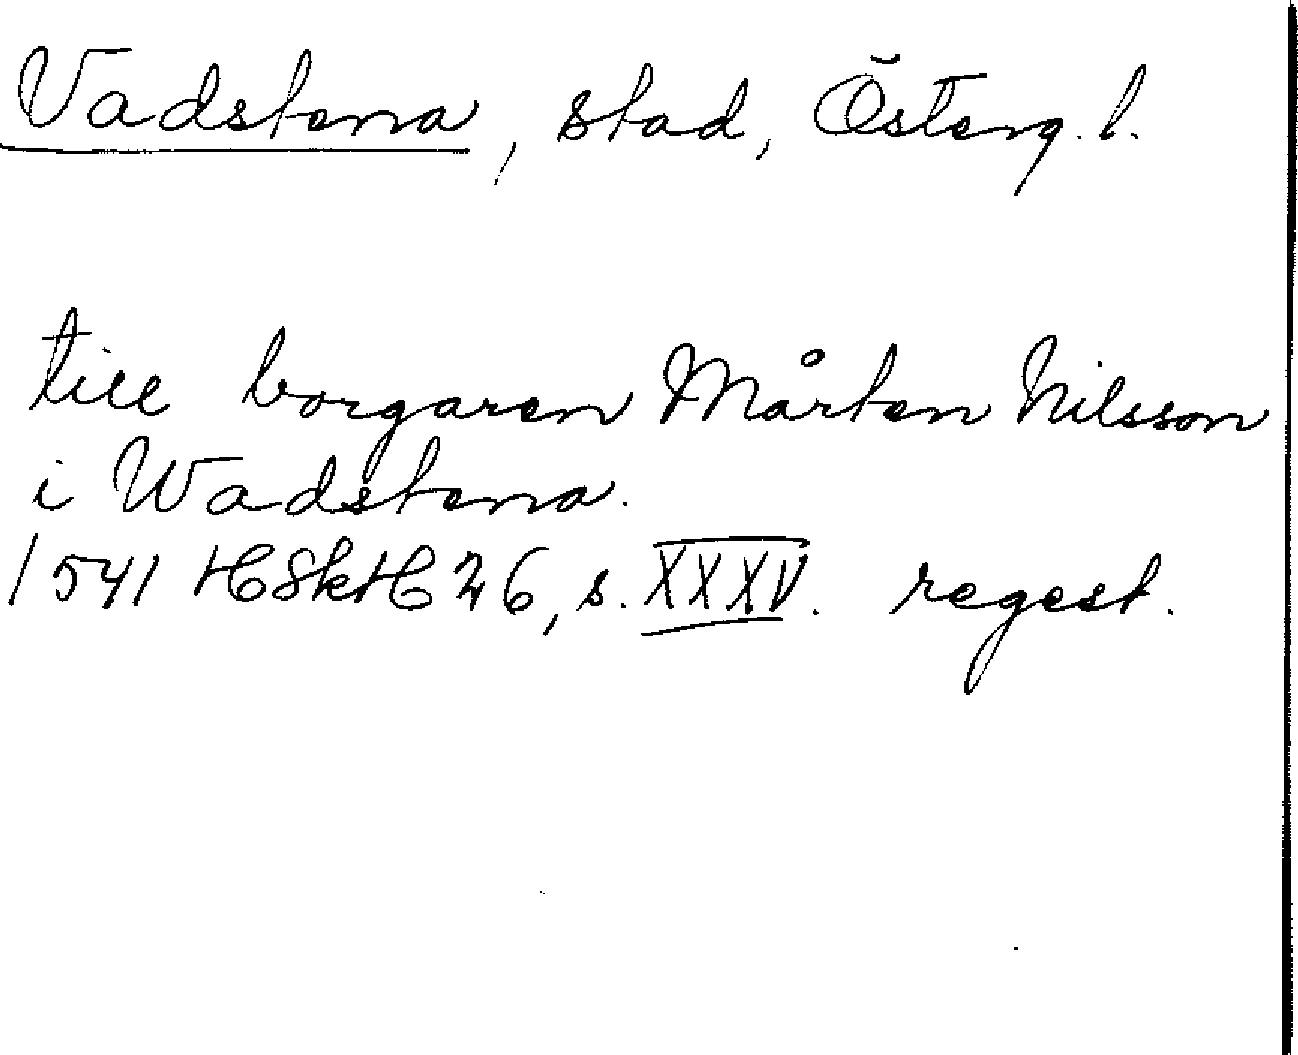 Vadstena, stad, Österg. l.
till borgaren Mårten Nilsson
i Wadstena.
1541 HSkH 26, s. XXXV. regest.